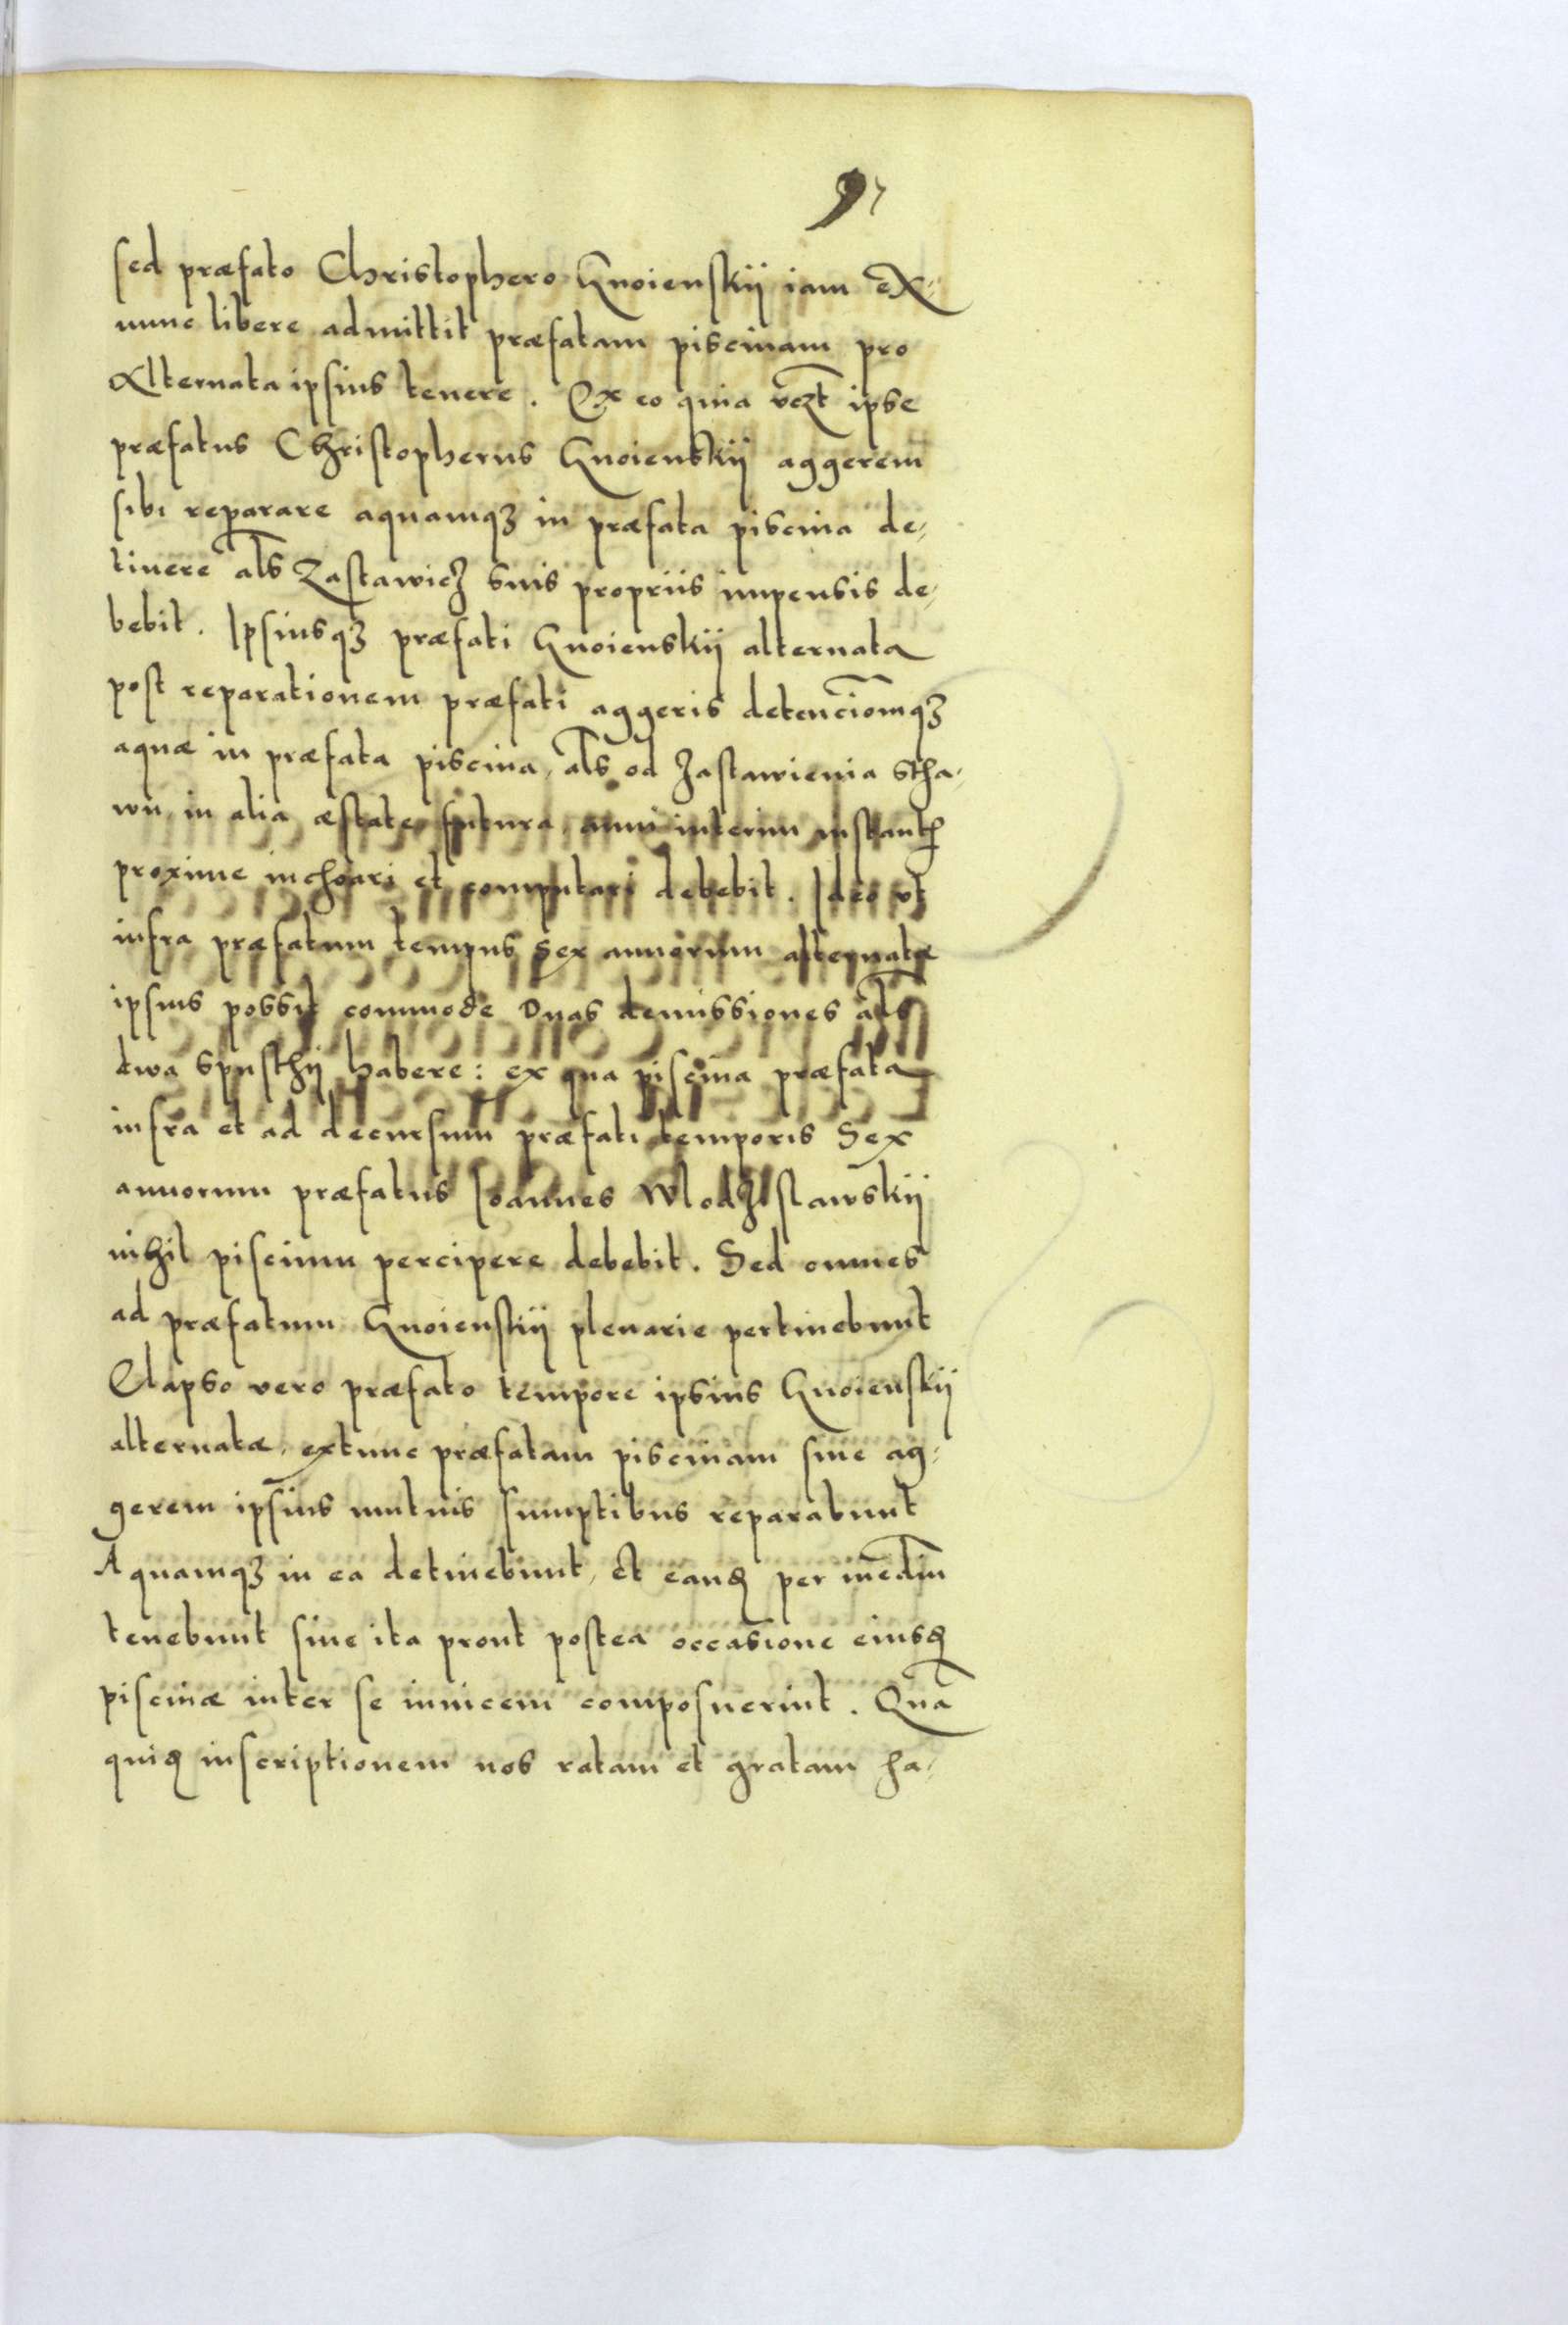 97
sed præfato Christophero Gnoienskij iam ex-
nunc libere admittit præfatam piscinam pro
Alternata ipsius tenere. Ex eo quia vczt ipse
præfatus Christopherus Gnoienskij aggerem
sibi reparare aquamqȝ in præfata piscina de-
tinere als Zastawicz suis propriis impensis de-
bebit. Ipsiusqȝ præfati Gnoienskij alternata
post reparationem præfati aggeris detencionmqȝ
aquæ in præfata piscina, als od zastawienia stha-
wu, in alia æstate futura, anni interim instanti
proxime inchoari et computari debebit. Ideo vt
infra præfatum tempus Sex annorum alternatæ
ipsius possit commode Duas demissiones als
dwa spusthij habere: ex qua piscina præfata
infra et ad decursum præfati temporis Sex
annorum præfatus Ioannes Wlodzislawskij
nihil piscium percipere debebit. Sed omnes
ad præfatum Gnoienskij plenarie pertinebunt
Elapso vero præfato tempore ipsius Gnoienskij
alternatæ, extunc præfatam piscinam siue ag-
gerem ipsius mutuis sumptibus reparabunt
Aquamqȝ in ea detinebunt, Et eand per mediu
tenebunt siue ita prout postea occasione eiusd
piscinæ inter se inuicem composuerint. Qua
quid inscriptionem nos ratam et gratam ha-